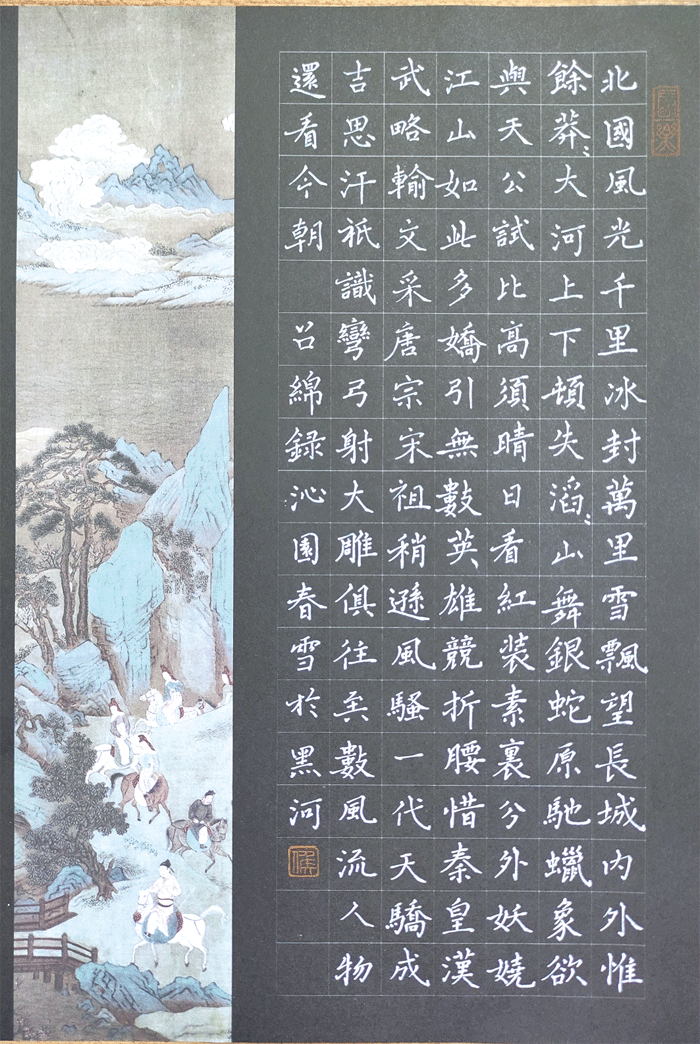 北國風光千里冰封萬里雪飄望長城内外惟
餘莽〻大河上下頓失滔〻山舞銀蛇原馳蠟象欲
與天公試比高須晴日看紅装素裹分外妖嬈
江山如此多嬌引無數英雄競折腰惜秦皇漢
武略輸文采唐宗宋祖稍遜風騷一代天驕成
吉思汗祇識彎弓射大雕俱往矣數風流人物
還看今朝 綿録沁園春雪於黑河